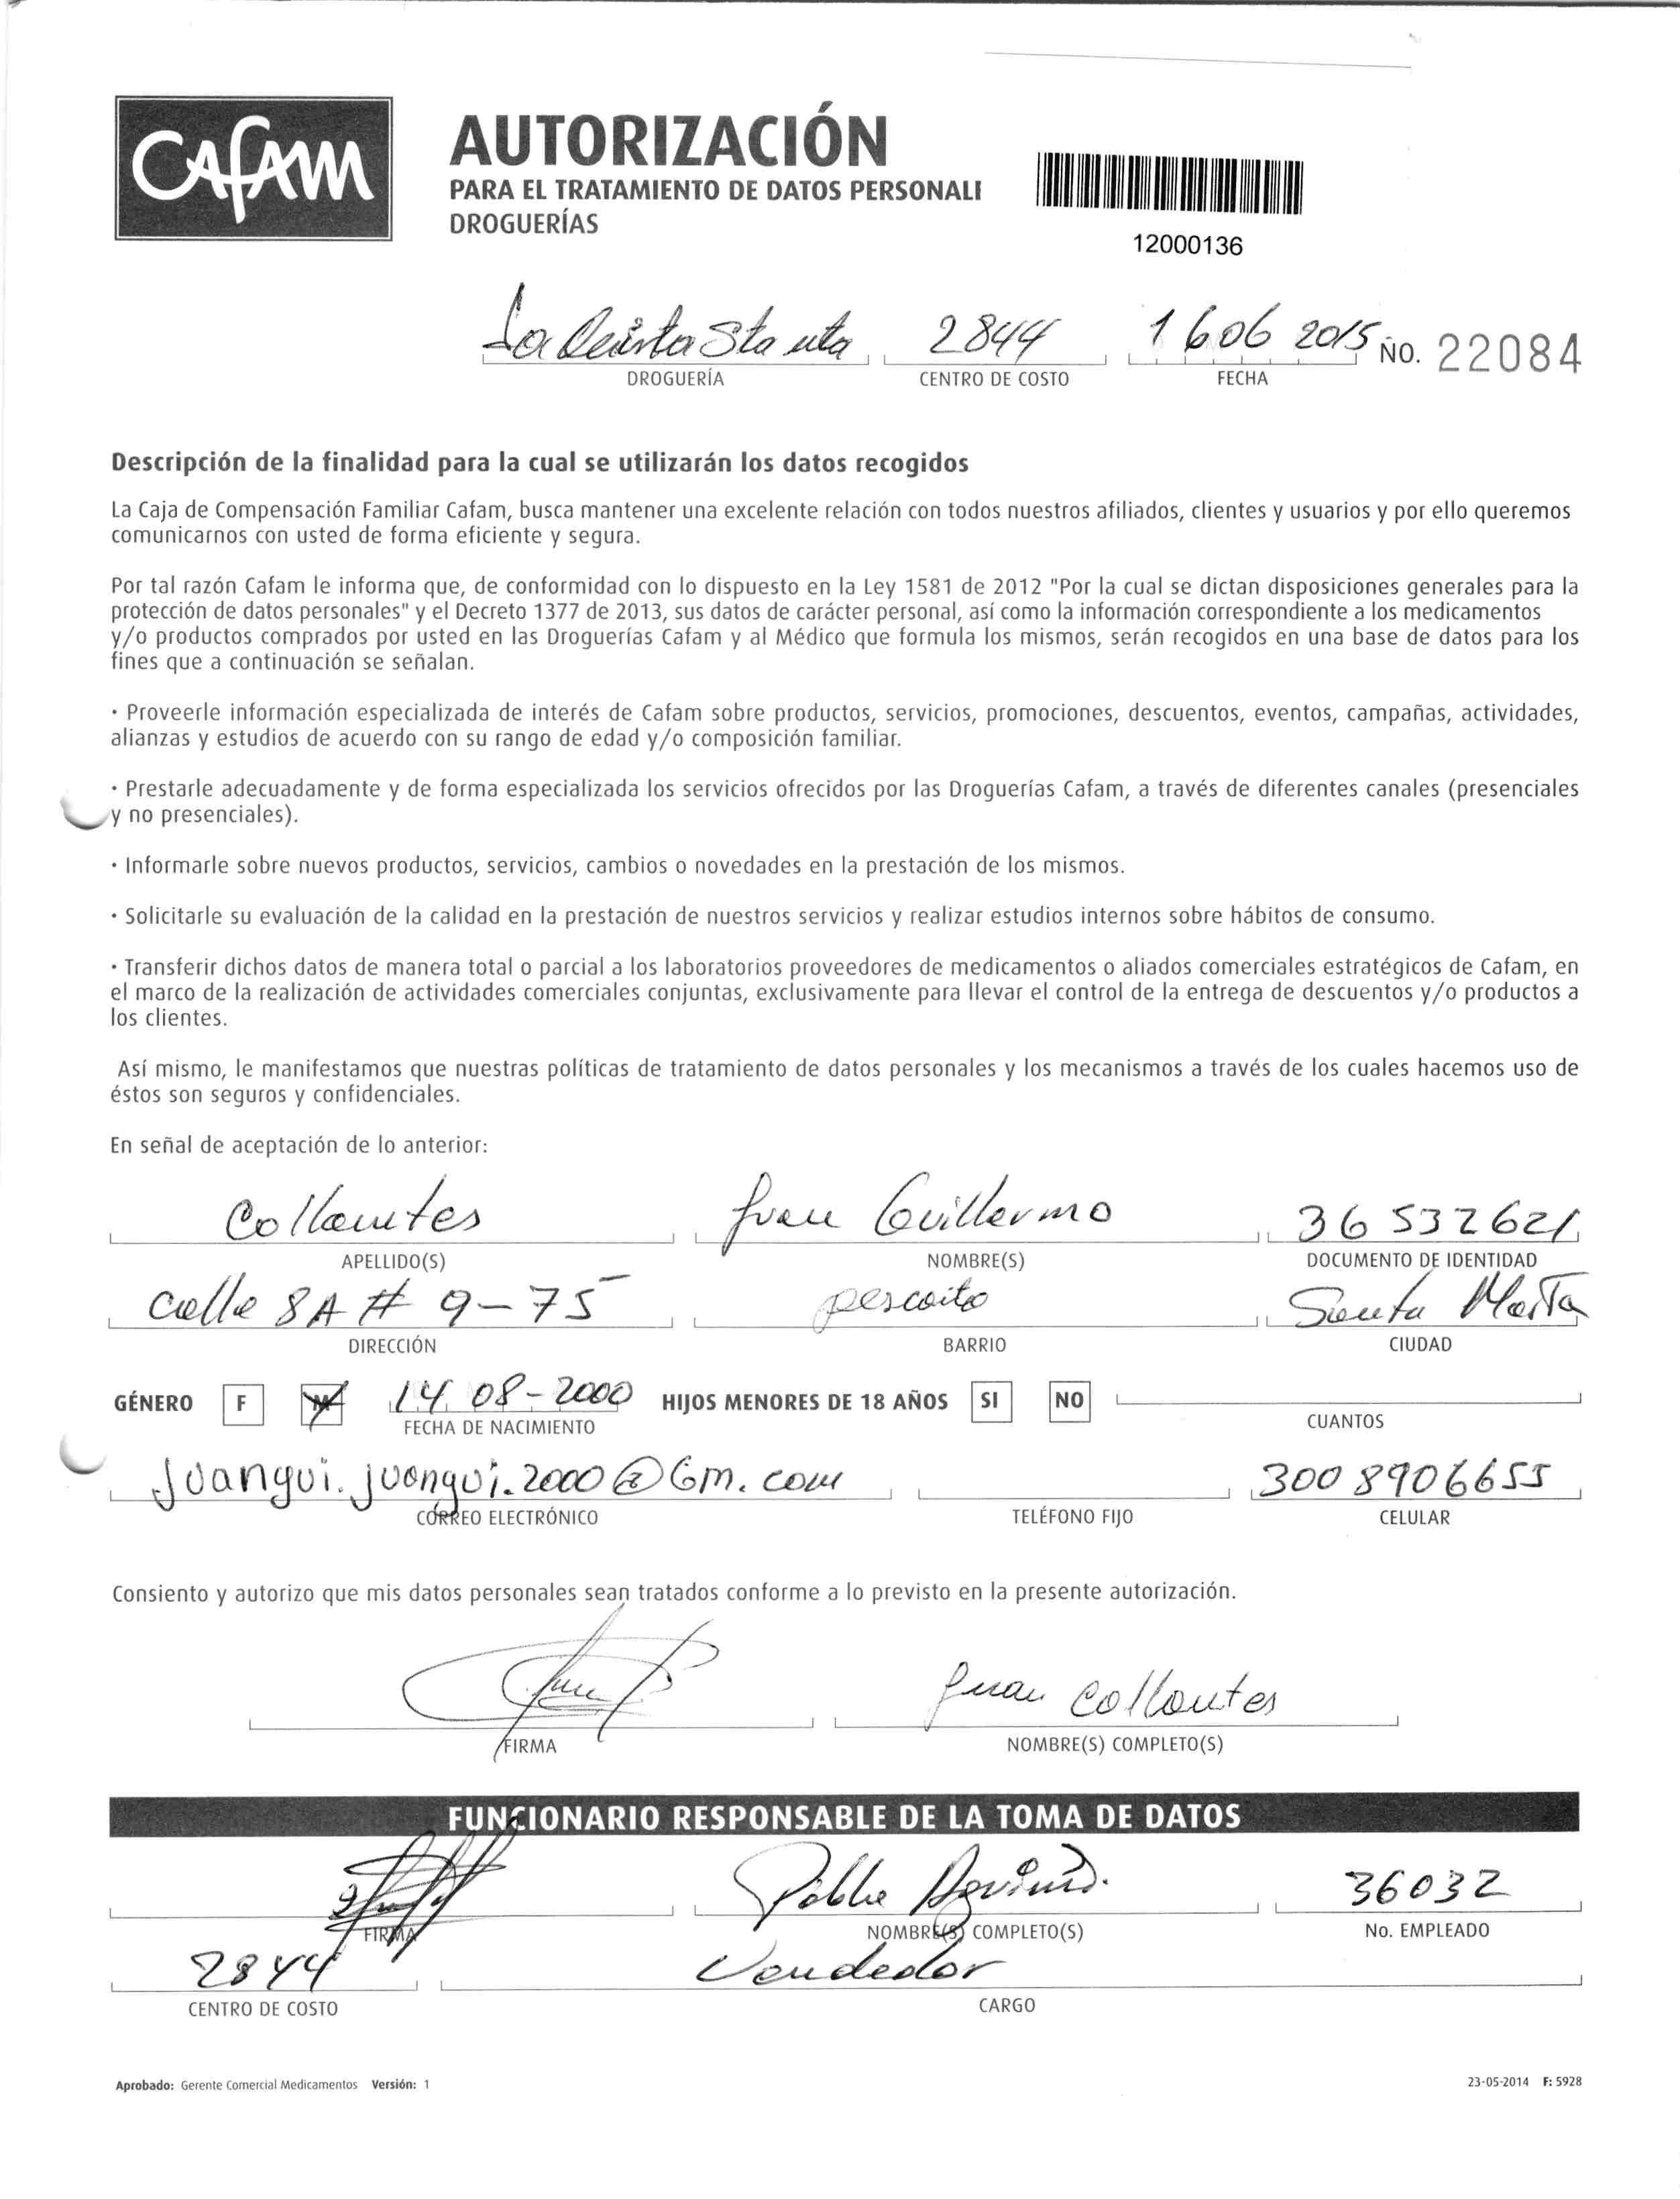 CAFAM
AUTORIZACIÓN
PARA EL TRATAMIENTO DE DATOS PERSONALI
DROGUERÍAS
12000136
La Quinta Sta 2844 16 06 2015 No. 22084
DROGUERÍA CENTRO DE COSTO FECHA
Descripción de la finalidad para la cual se utilizarán los datos recogidos
La Caja de Compensación Familiar Cafam, busca mantener una excelente relación con todos nuestros afiliados, clientes y usuarios y por ello queremos
comunicarnos con usted de forma eficiente y segura.
Por tal razón Cafam le informa que, de conformidad con lo dispuesto en la Ley 1581 de 2012 "Por la cual se dictan disposiciones generales para la
protección de datos personales" y el Decreto 1377 de 2013, sus datos de carácter personal, así como la información correspondiente a los medicamentos
y/o productos comprados por usted en las Droguerías Cafam y al Médico que formula los mismos, serán recogidos en una base de datos para los
fines que a continuación se señalan.
· Proveerle información especializada de interés de Cafam sobre productos, servicios, promociones, descuentos, eventos, campañas, actividades,
alianzas y estudios de acuerdo con su rango de edad y/o composición familiar.
· Prestarle adecuadamente y de forma especializada los servicios ofrecidos por las Droguerías Cafam, a través de diferentes canales (presenciales
y no presenciales).
· Informarle sobre nuevos productos, servicios, cambios o novedades en la prestación de los mismos.
· Solicitarle su evaluación de la calidad en la prestación de nuestros servicios y realizar estudios internos sobre hábitos de consumo.
· Transferir dichos datos de manera total o parcial a los laboratorios proveedores de medicamentos o aliados comerciales estratégicos de Cafam, en
el marco de la realización de actividades comerciales conjuntas, exclusivamente para llevar el control de la entrega de descuentos y/o productos a
los clientes.
Así mismo, le manifestamos que nuestras políticas de tratamiento de datos personales y los mecanismos a través de los cuales hacemos uso de
éstos son seguros y confidenciales.
En señal de aceptación de lo anterior:
Collantes Juan Guillermo 36532621
APELLIDO(S) NOMBRE(S) DOCUMENTO DE IDENTIDAD
calle 8A # 9-75 pescaito Santa Marta
DIRECCIÓN BARRIO CIUDAD
GÉNERO F M 14 08-2000 HIJOS MENORES DE 18 AÑOS SI NO
FECHA DE NACIMIENTO CUANTOS
juangui.juangui.2000@Gm.com 300 8906655
CORREO ELECTRÓNICO TELÉFONO FIJO CELULAR
Consiento y autorizo que mis datos personales sean tratados conforme a lo previsto en la presente autorización.
Juan Collantes
FIRMA NOMBRE(S) COMPLETO(S)
FUNCIONARIO RESPONSABLE DE LA TOMA DE DATOS
36032
FIRMA NOMBRE(S) COMPLETO(S) No. EMPLEADO
2844 Vendedor
CENTRO DE COSTO CARGO
Aprobado: Gerente Comercial Medicamentos Versión: 1 23-05-2014 F: 5928